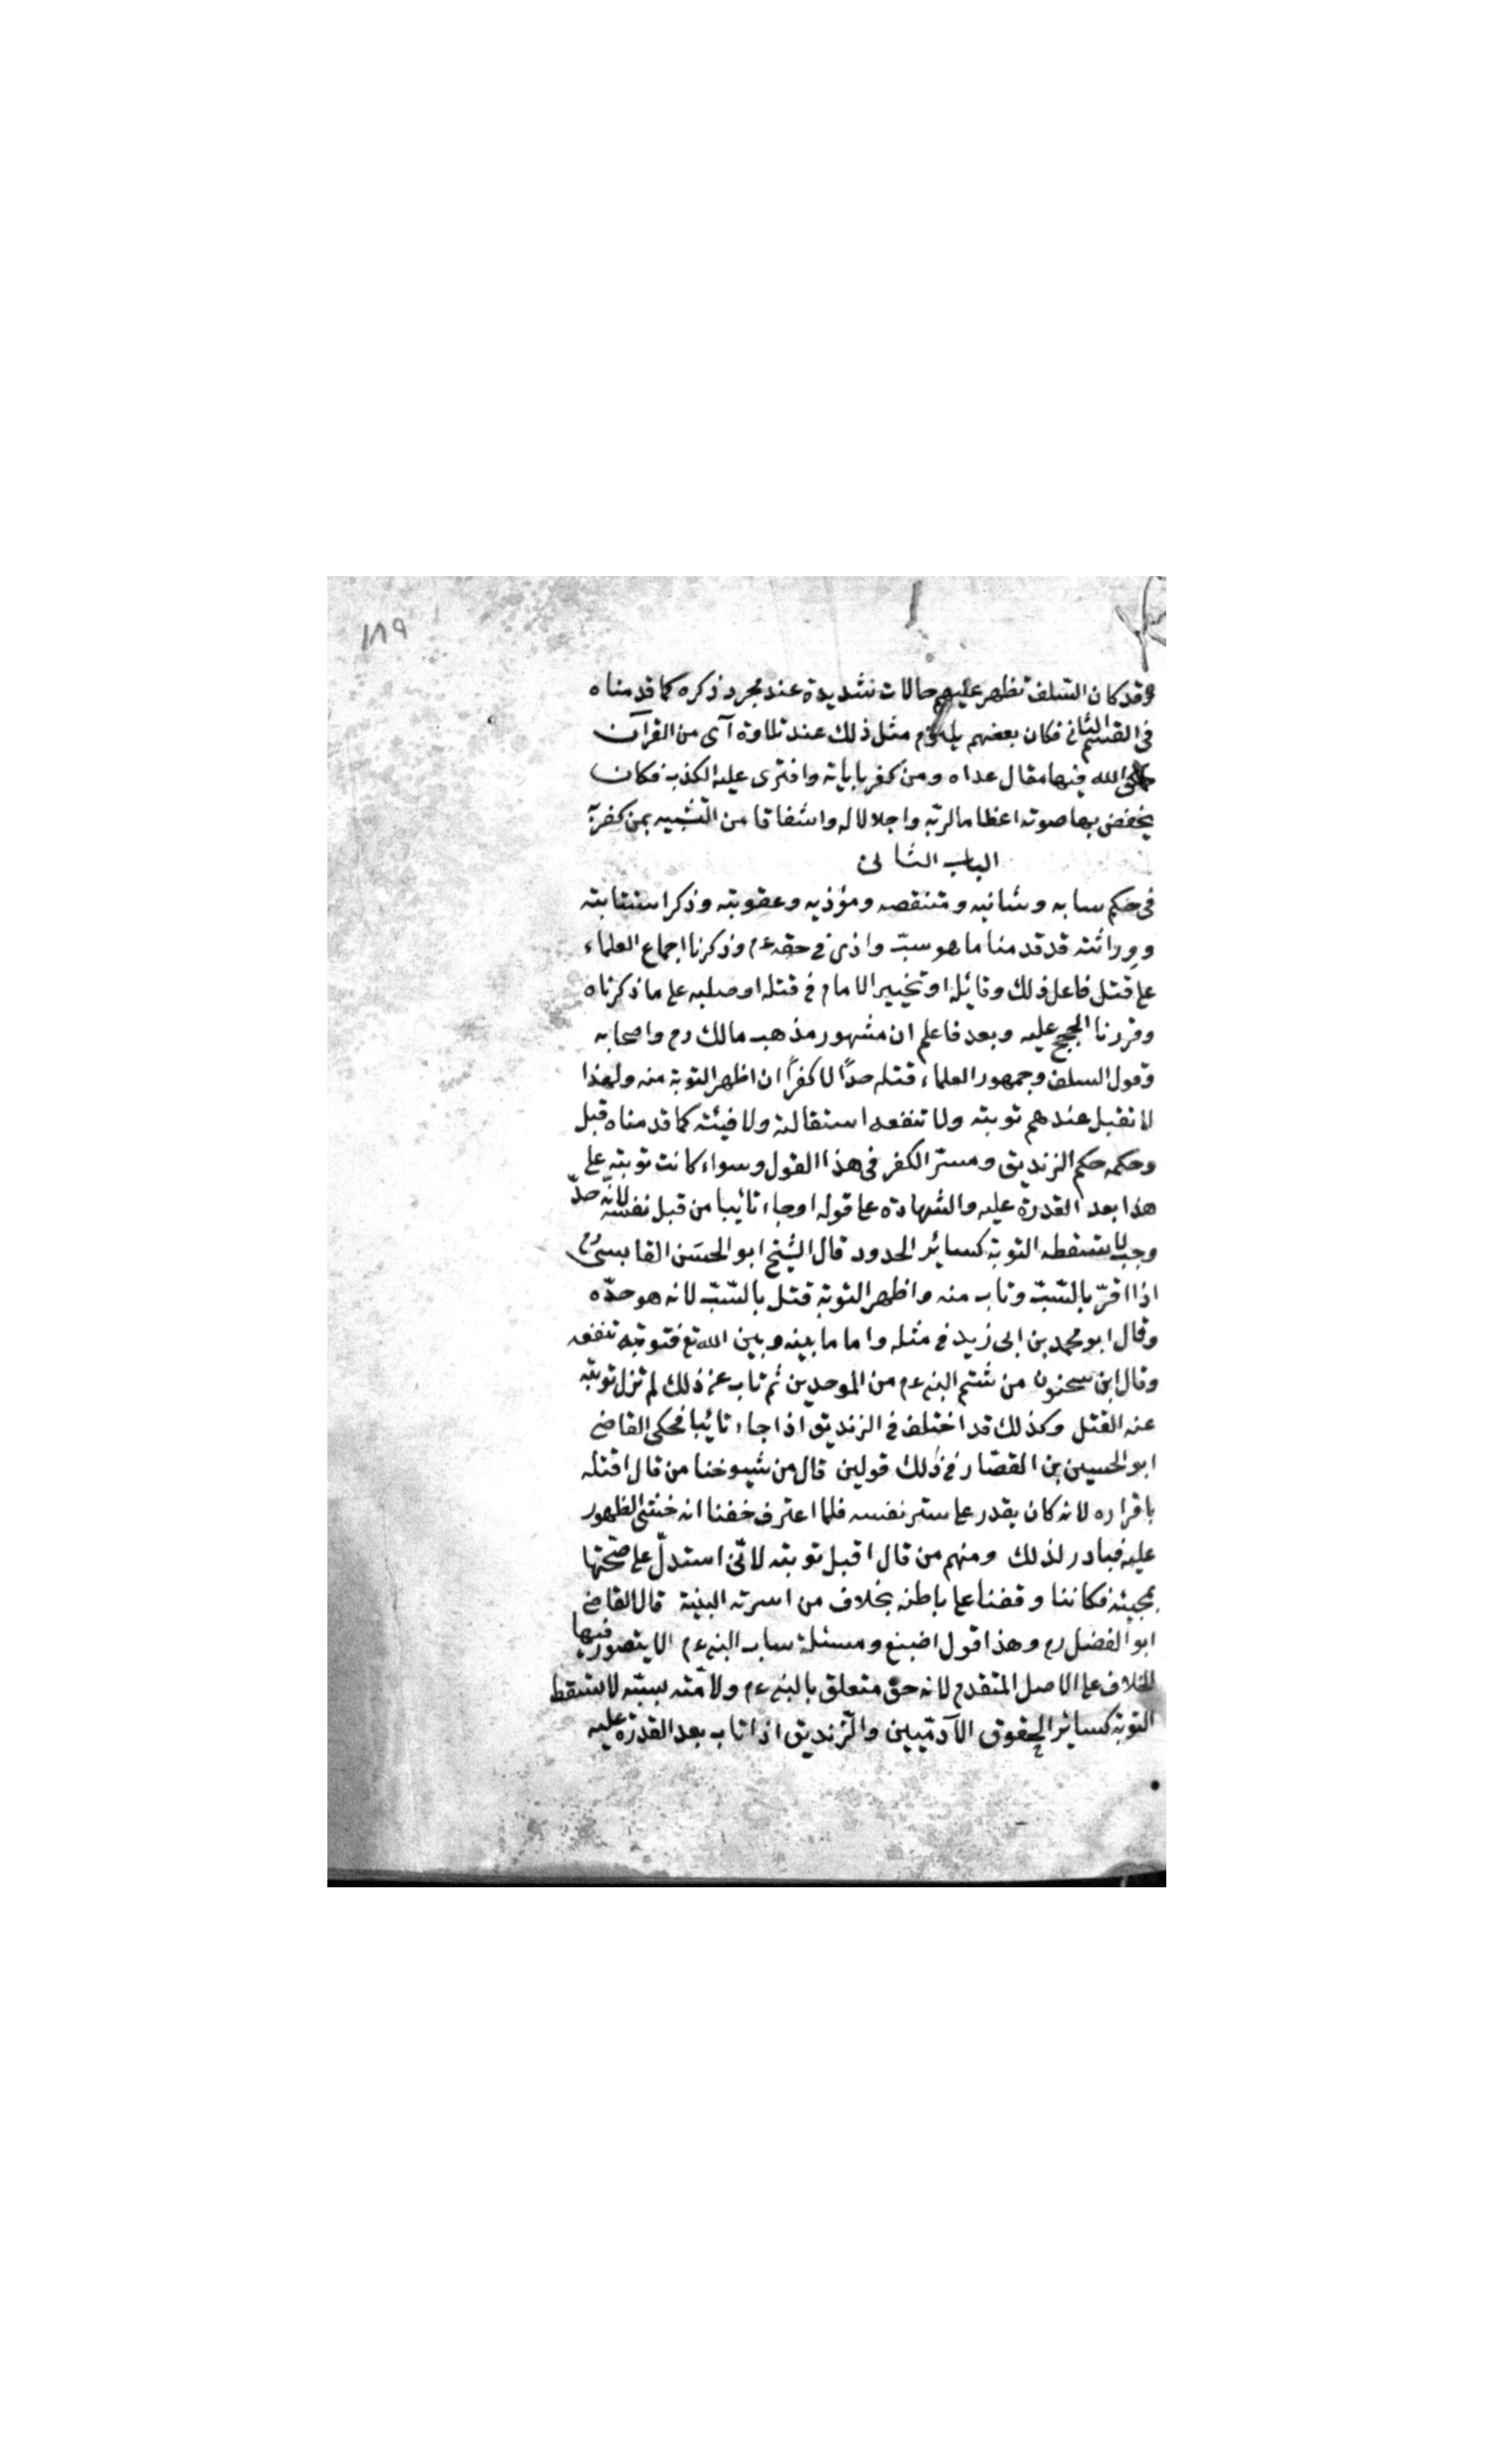 ١٨٩
وقد كان السلف تظهر عليهم حالات شديدة عند مجرد ذكره كما قدمناه
فى القسم الثانى فكان بعضهم يلتزم مثل ذلك عند تلاوة آى من القرآن
حكى الله فيها مقال عداه ومن كفر باياته وافترى عليه الكذب فكان
يخفض بها صوته اعظاما لربه واجلالا له واشفاقا من التشبيه بمن كفر به
الباب الثانى
فى حكم سابه وشانيه ومتنقصه ومؤذيه وعقوبته وذكر استتابته
ووراثته قد قدمنا ما هو سبّ واذى فى حقه عم وذكرنا اجماع العلماء
على قتل فاعل ذلك وقائله او تخيير الامام فى قتله او صلبه على ما ذكرناه
وقررنا الحجج عليه وبعد فاعلم ان مشهور مذهب مالك رح واصحابه
وقول السلف وجمهور العلماء قتله حدًا لا كفرًا ان اظهر التوبة منه ولهذا
لا تقبل عندهم توبته ولا تنفعه استقالته ولا فيئته كما قدمناه قبل
وحكمه حكم الزنديق ومسرّ الكفر فى هذا القول وسواء كانت توبته على
هذا بعد القدرة عليه والشهادة على قوله او جاء تائبا من قبل نفسه لانه حدّ
وجب لا تسقطه التوبة كسائر الحدود قال الشيخ ابو الحسن القابسى رح
اذا اقرّ بالسّبّ وتاب منه واظهر التوبة قتل بالسّبّ لانه هو حدّه
وقال ابو محمد بن ابى زيد فى مثله واما ما بينه وبين الله تع فتوبته تنفعه
وقال ابن سحنون من شتم النبى عم من الموحدين ثم تاب عن ذلك لم تزل توبته
عنه القتل وكذلك قد اختلف فى الزنديق اذا جاء تائبا فحكى القاضى
ابو الحسين بن القصّار فى ذلك قولين قال من شيوخنا من قال اقتله
باقراره لانه كان يقدر على ستر نفسه فلما اعترف خفنا انه خشى الظهور
عليه فبادر لذلك ومنهم من قال اقبل توبته لانّى استدلّ على صحّتها
بمجيئه فكاننا وقفنا على باطنه بخلاف من اسرته البينة قال القاضى
ابو الفضل رح وهذا قول اصبغ ومسئلة ساب النبى عم لا يتصوّر فيها
الخلاف على الاصل المتقدم لانه حق متعلق بالنبى عم ولامّته بسبّه لا تسقط
التوبة كسائر الحقوق الآدميين والزنديق اذا تاب بعد القدرة عليه